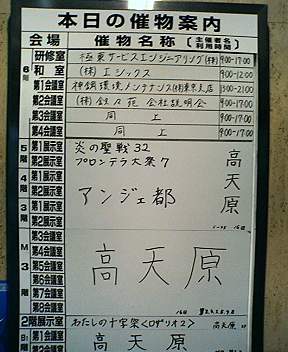 本日の催物案内
会場 催物名称 主催者名 利用時間
6階 研修室 極東サービスエンジニアリング(株) 9:00-17:00
和室 (株)エシックス 9:00-12:00
第1会議室 神鋼環境メンテナンス(株)東京支店 13:00-21:00
第2会議室 会社説明会 9:00-17:00
第3会議室 同上 9:00-17:00
第4会議室 同上 9:00-17:00
5階 第1展示室 炎の聖戦32
第2展示室 プロンテラ大祭7
4階 第1展示室 アンジェ都
第2展示室
3階 第1展示室
第2展示室
高天原
M3階 第3会議室
第4会議室
第5会議室
第6会議室
第7会議室
第8会議室
高天原
2階展示室 わたしの十字架<ロザリオ2> 高天原
B1階 第1展示室
第2
高天原